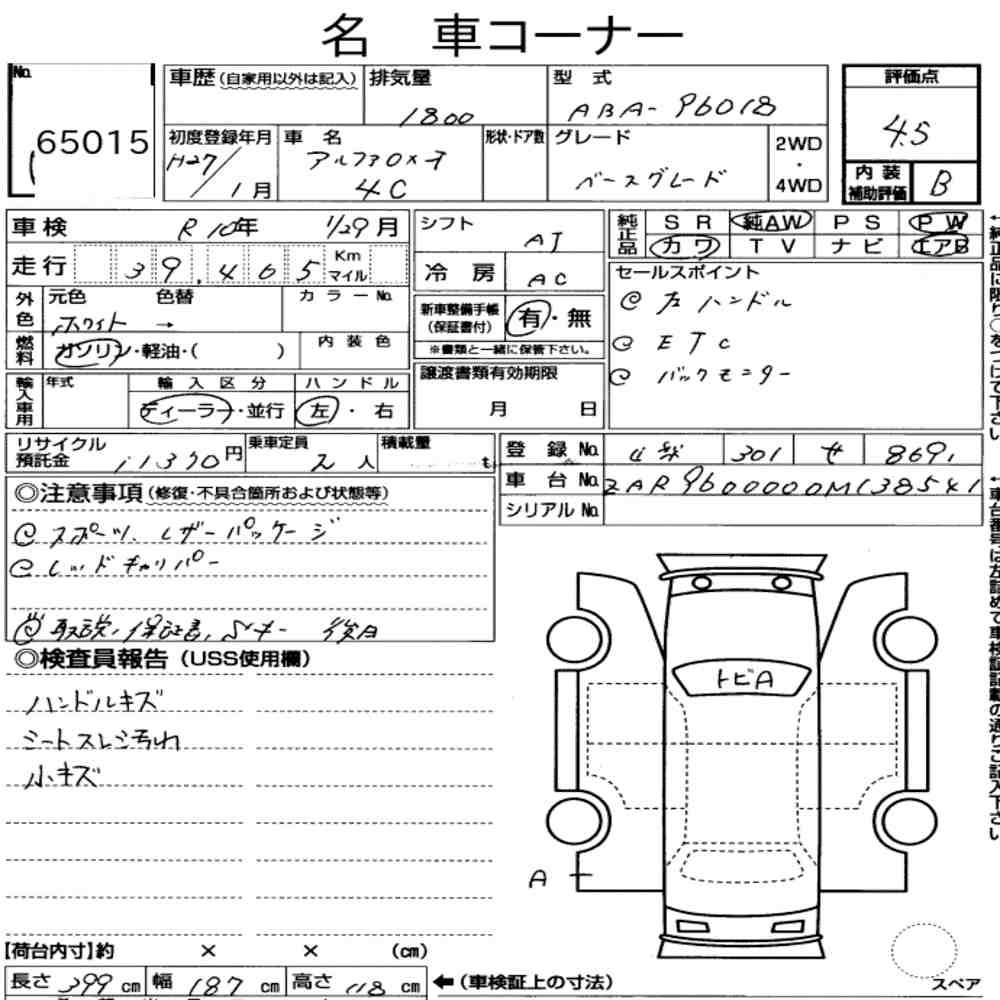 名 車コーナー
No. 65015
車歴 (自家用以外は記入) 排気量 1800 型 式 ABA-96018
初度登録年月 H27/1月 車 名 アルファロメオ 4C 形状・ドア数 グレード ベースグレード 2WD・4WD
評価点 4.5
内装補助評価 B
車検 R10年 1/29月
走行 39,465 Km マイル
外色 元色 ホワイト 色替 → カラーNo.
燃料 ガソリン・軽油・( ) 内装色
輸入車用 年式 輸入区分 ディーラー・並行 ハンドル 左・右
シフト AT
冷房 AC
新車整備手帳(保証書付) 有・無
※書類と一緒に保管下さい。
譲渡書類有効期限
月 日
純正品 SR 純AW PS PW
カワ TV ナビ エアB
セールスポイント
@ 左ハンドル
@ ETC
@ バックモニター
リサイクル預託金 11370円 乗車定員 2人 積載量
登録No. 301 せ 8691
車台No. ZAR9600000M138541
シリアルNo.
◎注意事項(修復・不具合箇所および状態等)
@ スポーツ、レザーパッケージ
@ レッドキャリパー
@ 取説、保証書、Sキー 後日
◎検査員報告(USS使用欄)
ハンドルキズ
シートスレ汚れ
小キズ
トビA
A
スペア
【荷台内寸】約 × × (cm)
長さ 399 cm 幅 187 cm 高さ 118 cm ←(車検証上の寸法)
←純正品に限り○をつけて下さい
←車台番号は左詰めで車検証記載の通りご記入下さい